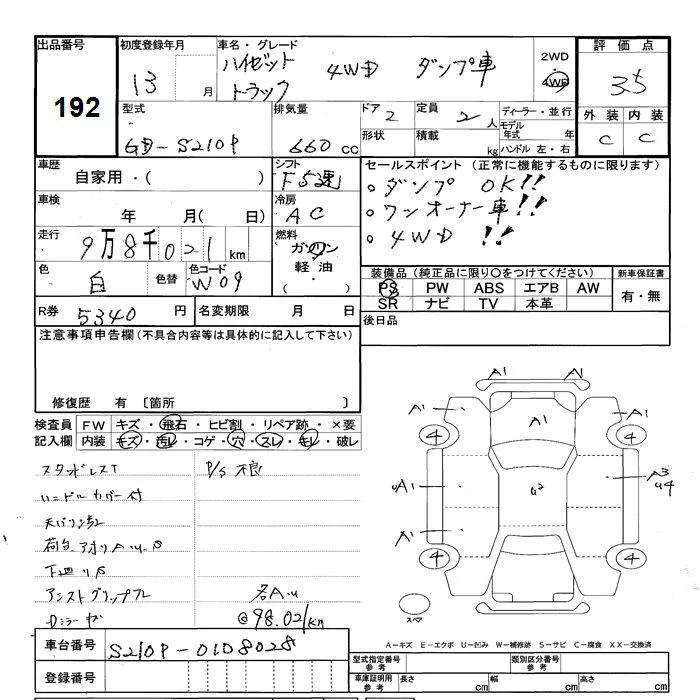 出品番号
192
初度登録年月
13 月
車名・グレード
ハイゼット
トラック 4WD ダンプ車
2WD
4WD
評価点
3.5
外装 内装
C C
型式
GD-S210P
排気量
660 cc
ドア 2
形状
定員 2 人
積載 kg
ディーラー・並行
モデル年式 年
ハンドル 左・右
車歴
自家用・( )
シフト
F5速
車検
年 月( 日)
冷房
AC
走行
9万8千021 km
燃料
ガソリン
軽油・
( )
色
白
色替
色コード
W09
R券 5340 円
名変期限 月 日
セールスポイント(正常に機能するものに限ります)
○ダンプ OK!!
○ワンオーナー車!!
○4WD !!
装備品(純正品に限り○をつけてください)
PS PW ABS エアB AW
SR ナビ TV 本革
新車保証書
有・無
後日品
注意事項申告欄(不具合内容等は具体的に記入して下さい)
修復歴 有 〔箇所 〕
検査員記入欄
FW キズ・飛石・ヒビ割・リペア跡・×要
内装 キズ・汚レ・コゲ・穴・スレ・キレ・破レ
スタッドレスT
P/S不良
ハンドルカバー付
荷台アオリA.U.S
下廻りS
名A.U
Dミラーキズ
@98.021km
A1 A1
A1 A1 A1
4 4
A1 U2 A3
U4
A1
4 4
スペア
A-キズ E-エクボ U-凹み W-補修跡 S-サビ C-腐食 XX-交換済
車台番号 S210P-0108028
登録番号
型式指定番号
参考
類別区分番号
参考
車庫証明用
参考
長さ cm 幅 cm 高さ cm